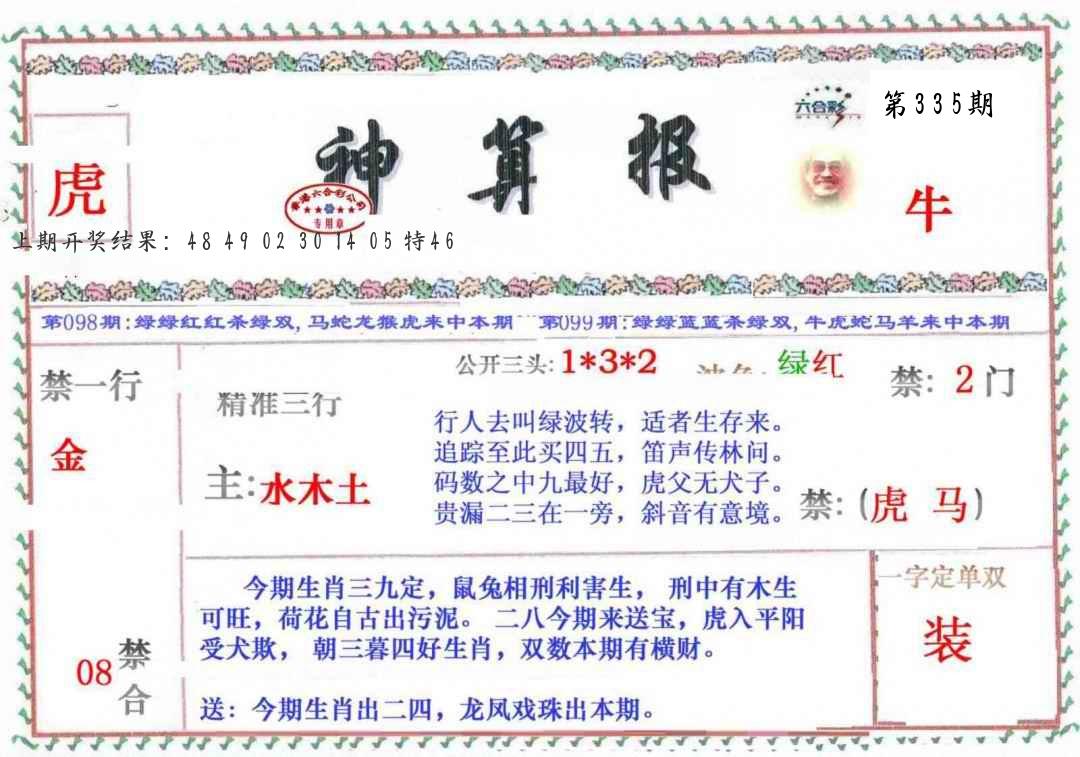 六合彩
第335期
神算报
虎
香港六合彩公司
专用章
牛
上期开奖结果: 48 49 02 30 14 05 特46
第098期:绿绿红红杀绿双,马蛇龙猴虎来中本期
第099期:绿绿蓝蓝杀绿双,牛虎蛇马羊来中本期
公开三头:1*3*2
绿红
禁一行
金
禁: 2门
精准三行
主:水木土
行人去叫绿波转，适者生存来。
追踪至此买四五，笛声传林间。
码数之中九最好，虎父无犬子。
贵漏二三在一旁，斜音有意境。
禁:(虎 马)
今期生肖三九定，鼠兔相刑利害生， 刑中有木生
可旺，荷花自古出污泥。 二八今期来送宝，虎入平阳
受犬欺， 朝三暮四好生肖，双数本期有横财。
送：今期生肖出二四，龙凤戏珠出本期。
一字定单双
装
08
禁合